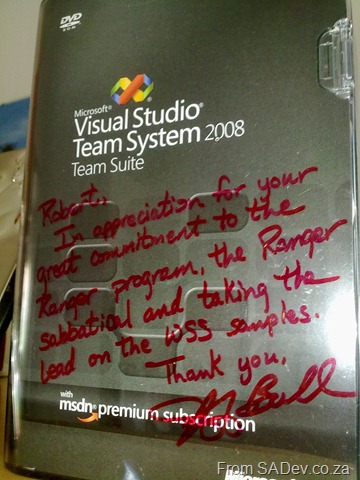 DVD
ROM
Microsoft®
Visual Studio®
Team System 2008
Team Suite
Robert,
In appreciation for your
great commitment to the
Ranger program, the Ranger
sabbatical and taking the
lead on the WSS samples.
Thank you,
with
msdn® premium subscription
Microsoft
From SADev.co.za